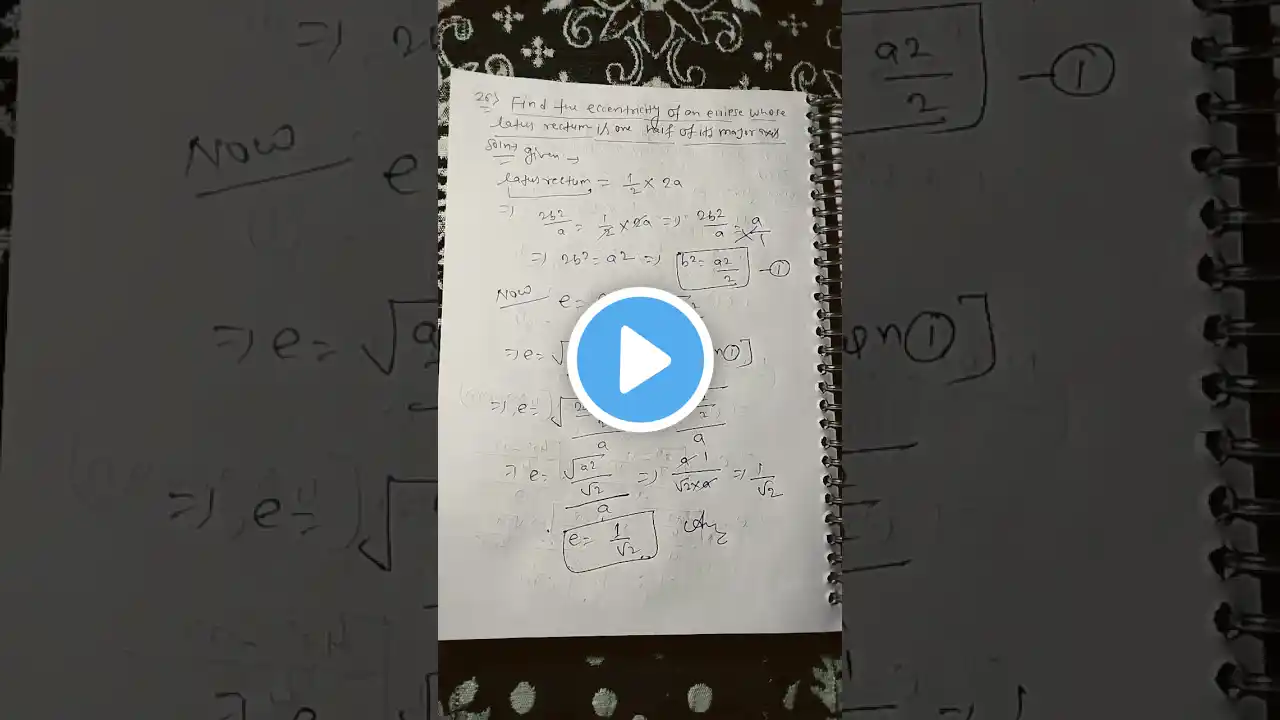 26) Find the eccentricity of an ellipse whose
latus rectum is one half of its major axis
Soln → given →
latus rectum = 1/2 × 2a
⇒ 2b2/a = 1/2 × 2a ⇒ 2b2/a = a/1
⇒ 2b2 = a2 ⇒ b2 = a2/2 —①
Now e =
⇒ e = √ qn①]
⇒ e = √
a a
⇒ e = √a2/√2/a ⇒ a 1/√2×a ⇒ 1/√2
e = 1/√2 Ans